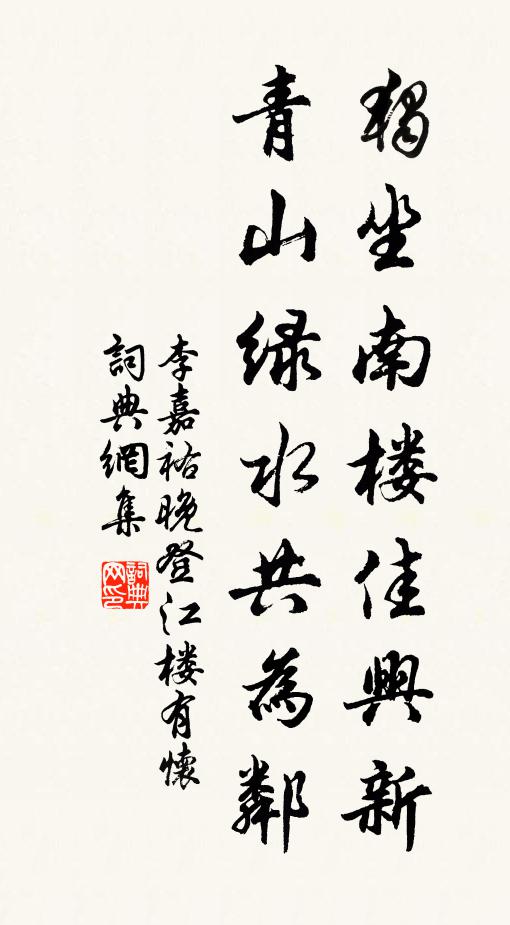 獨坐南楼佳興新
青山绿水共為鄰
李嘉祐晚登江楼有懷
詞典網集
詞典网印